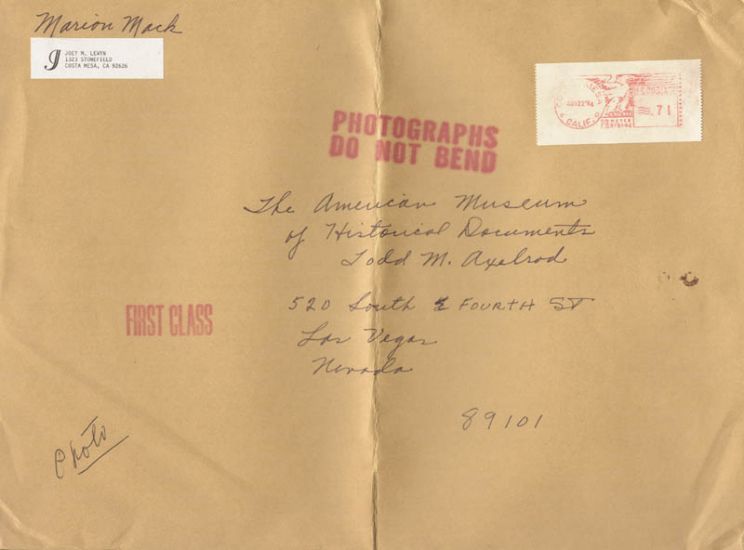 Marion Mack
J
JOEY M. LEVYN
1323 STONEFIELD
COSTA MESA, CA 92626
AUG 22 '84
CALIF.
.71
PHOTOGRAPHS
DO NOT BEND
The American Museum
of Historical Documents
Todd M. Axelrod
520 South FOURTH ST
Las Vegas
Nevada
89101
FIRST CLASS
Photo